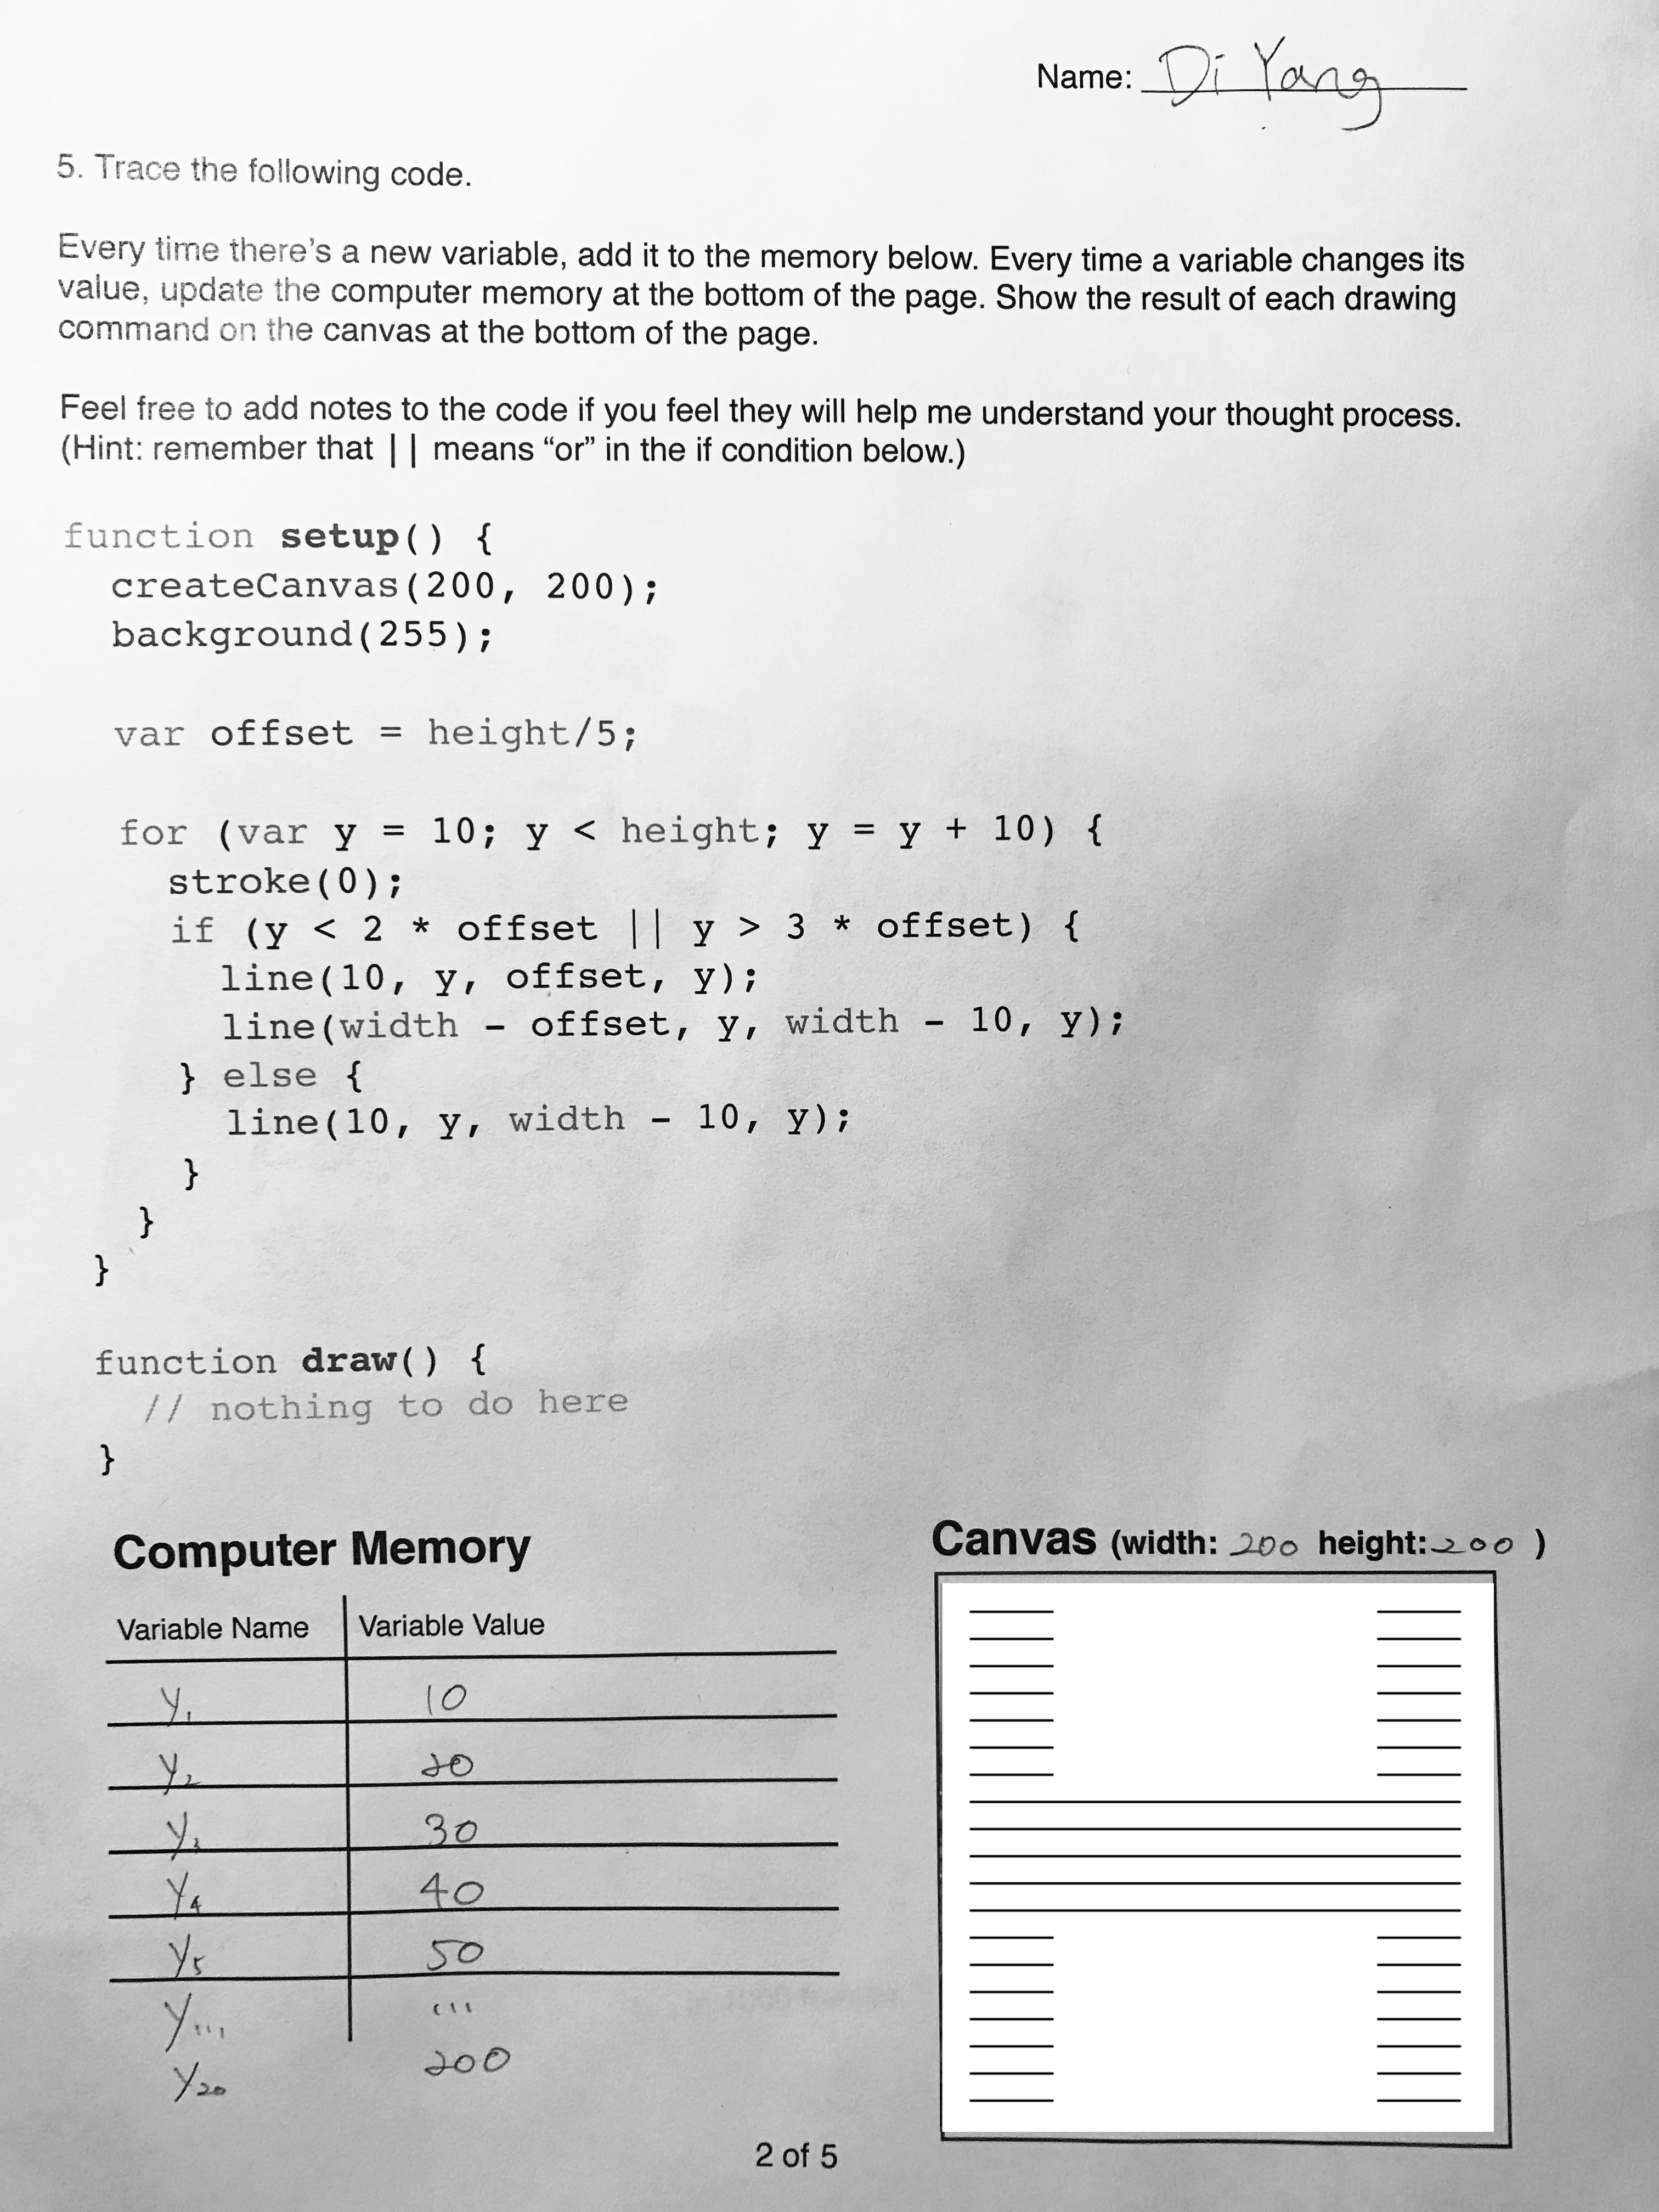 Name: Di Yang
5. Trace the following code.
Every time there's a new variable, add it to the memory below. Every time a variable changes its
value, update the computer memory at the bottom of the page. Show the result of each drawing
command on the canvas at the bottom of the page.
Feel free to add notes to the code if you feel they will help me understand your thought process.
(Hint: remember that || means “or” in the if condition below.)
function setup() {
createCanvas(200, 200);
background(255);
var offset = height/5;
for (var y = 10; y < height; y = y + 10) {
stroke(0);
if (y < 2 * offset || y > 3 * offset) {
line(10, y, offset, y);
line(width - offset, y, width - 10, y);
} else {
line(10, y, width - 10, y);
}
}
}
function draw() {
// nothing to do here
}
Computer Memory
Variable Name Variable Value
y1 10
y2 20
y3 30
y4 40
y5 50
y... ...
y20 200
Canvas (width: 200 height: 200 )
2 of 5